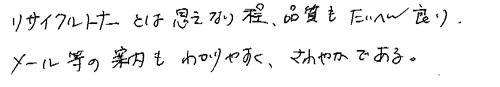 リサイクルトナーとは思えない程、品質もたいへん良い.
メール等の案内もわかりやすく、さわやかである。